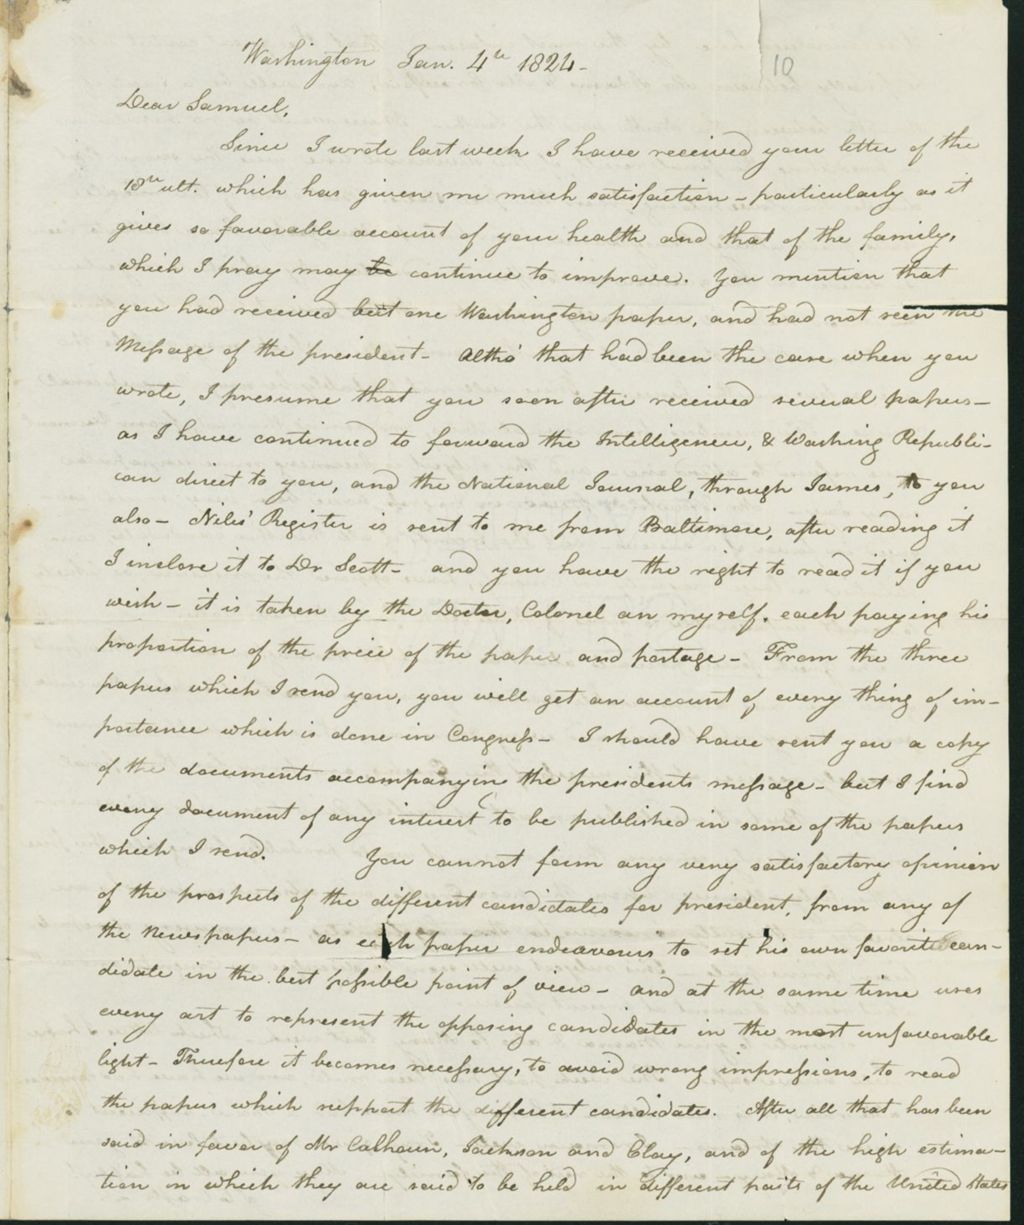 Washington Jan. 4th 1824-
10
Dear Samuel,
Since I wrote last week I have received your letter of the
18th ult. which has given me much satisfaction - particularly as it
gives so favorable account of your health and that of the family,
which I pray may be continue to improve. You mention that
you had received but one Washington paper, and had not seen the
Message of the president - Altho' that had been the case when you
wrote, I presume that you soon after received several papers -
as I have continued to forward the Intelligencer, & Washing Republi-
can direct to you, and the National Journal, through James, to you
also - Niles' Register is sent to me from Baltimore, after reading it
I inclose it to Dr Scott - and you have the right to read it if you
wish - it is taken by the Doctor, Colonel an myself. each paying his
proportion of the price of the paper and postage - From the three
papers which I send you, you will get an account of every thing of im-
portance which is done in Congress - I should have sent you a copy
of the documents accompanying the presidents message - but I find
every document of any interest to be published in some of the papers
which I send. You cannot form any very satisfactory opinion
of the prospects of the different candidates for president, from any of
the Newspapers - as each paper endeavours to set his own favorite can-
didate in the best possible point of view - and at the same time uses
every art to represent the opposing candidates in the most unfavorable
light - Therefore it becomes necessary, to avoid wrong impressions, to read
the papers which support the different candidates. After all that has been
said in favor of Mr Calhoun, Jackson and Clay, and of the high estima-
tion in which they are said to be held in different parts of the United States